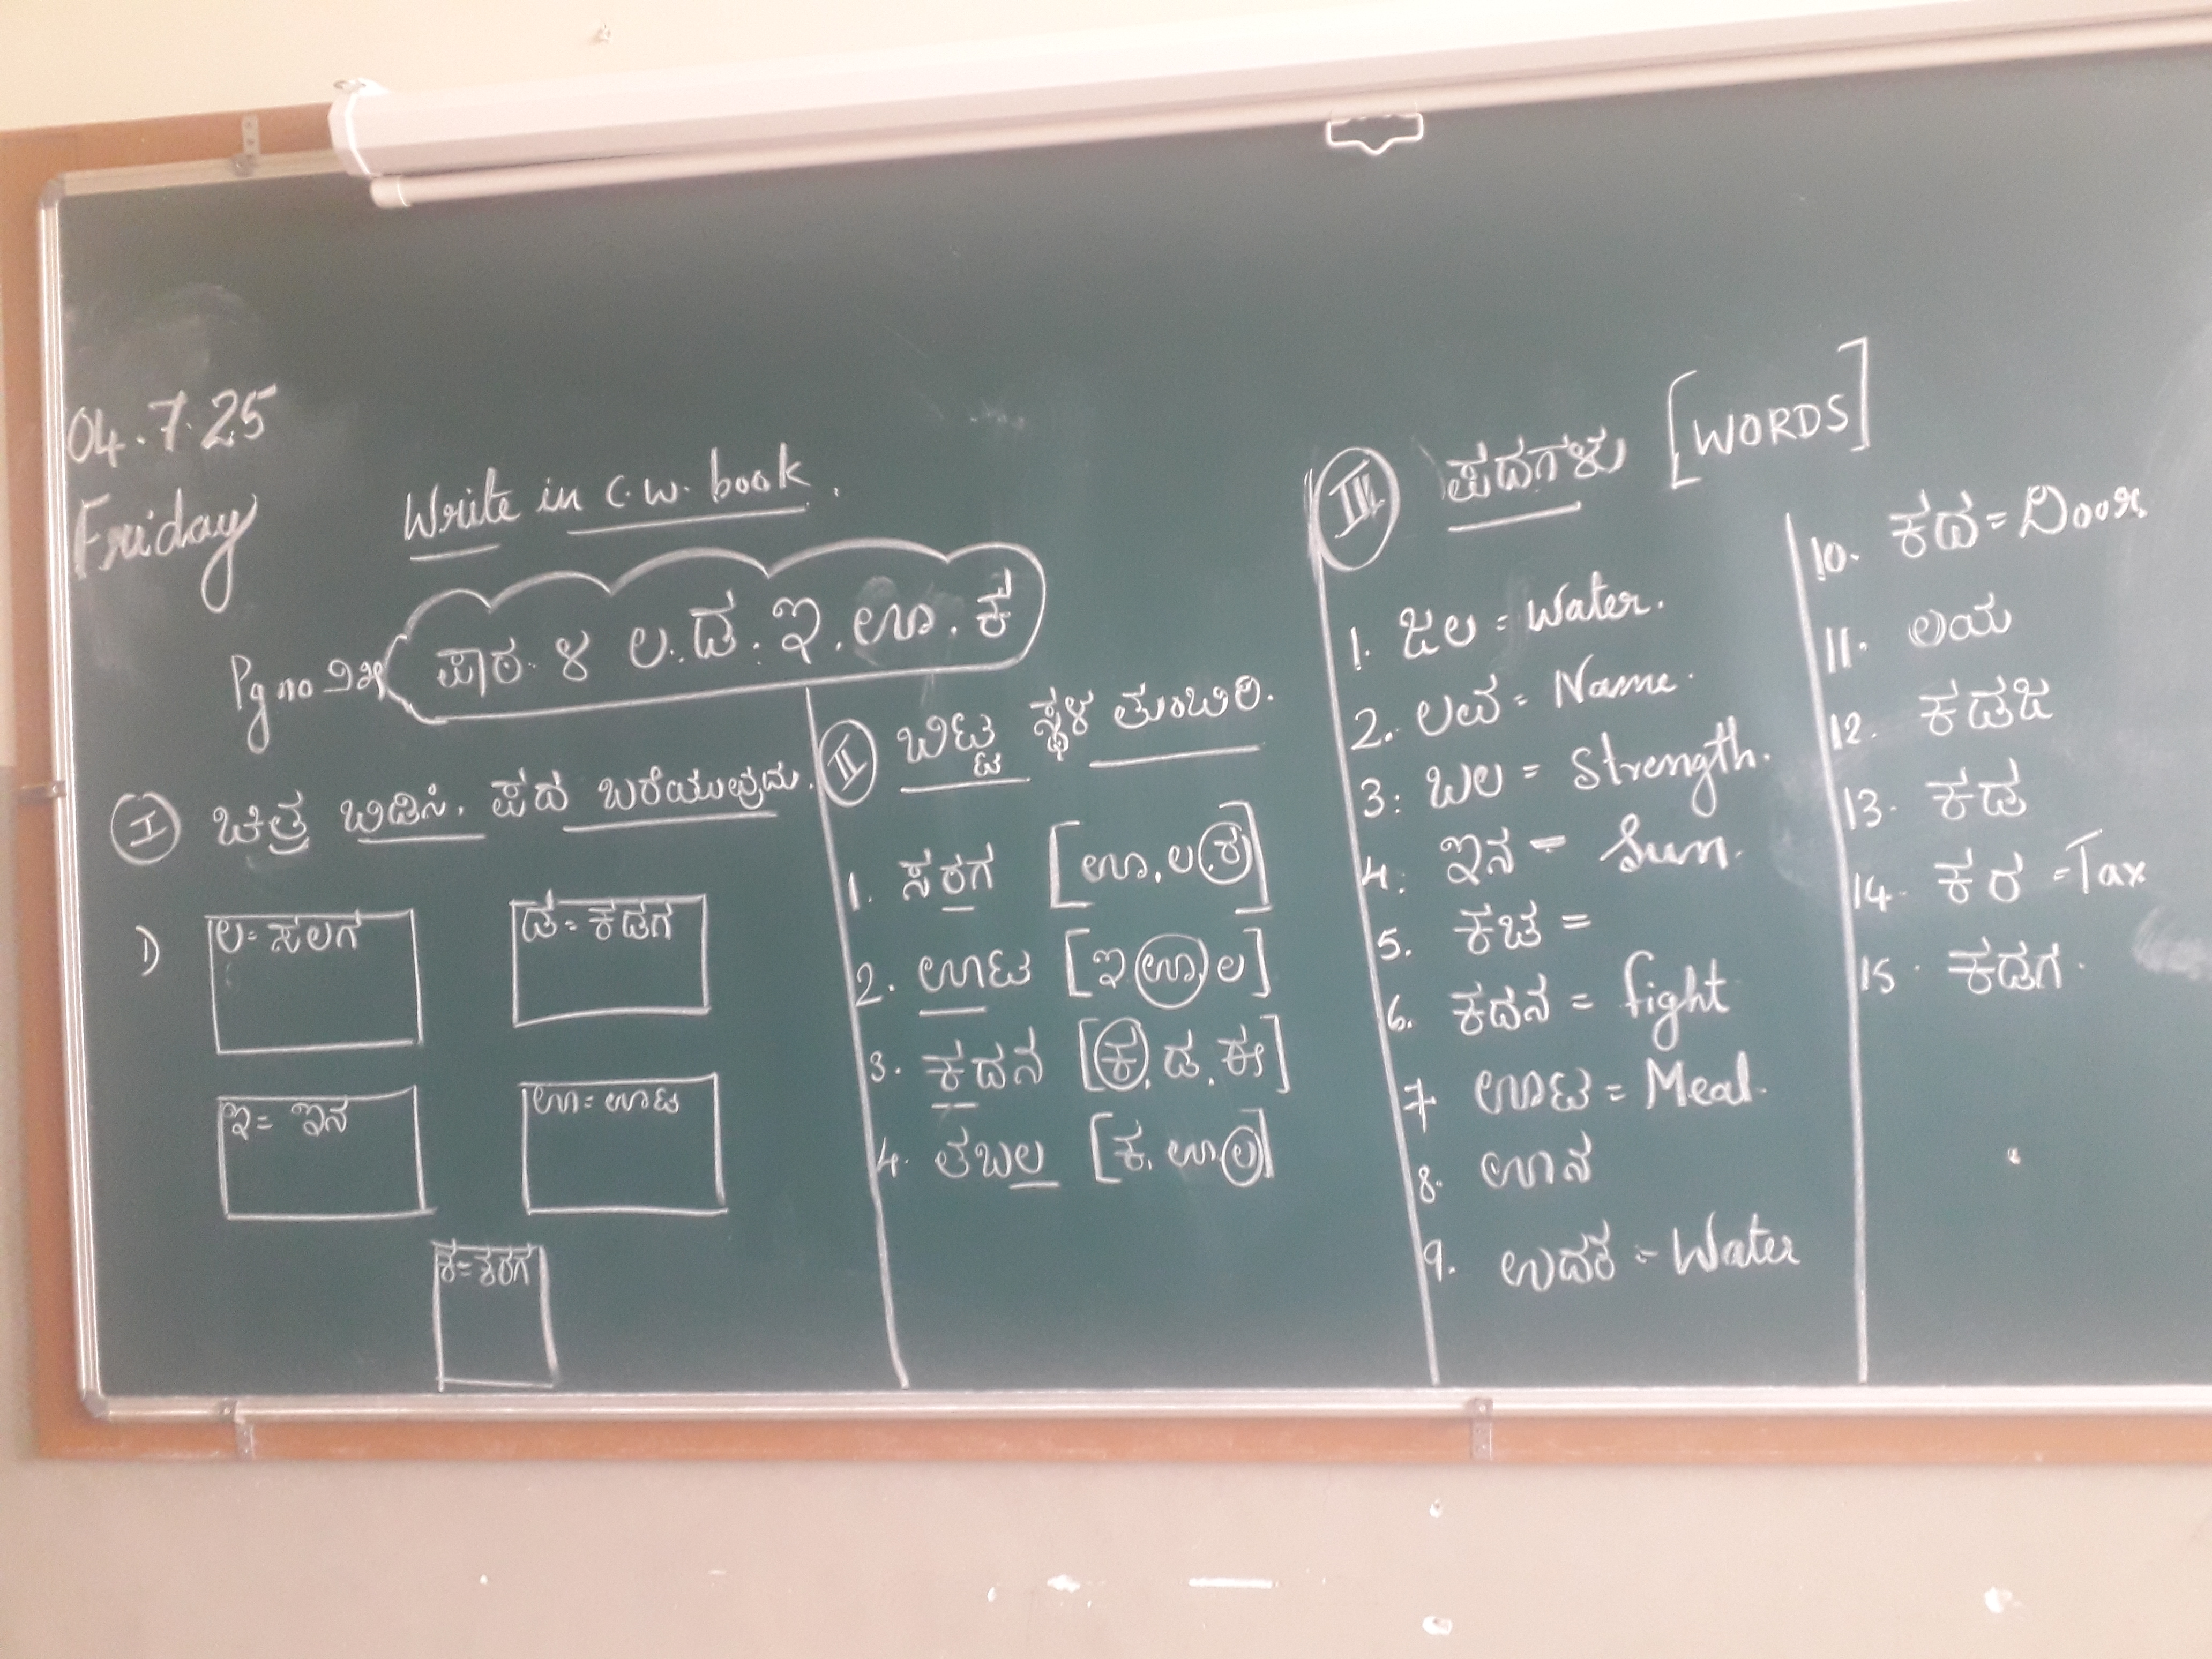 04.7.25
Friday
Write in C.W. book.
Pg no ೨೫
ಪಾಠ. ೪ ಲ. ಡ. ಇ. ಊ. ಕ
I ಚಿತ್ರ ಬಿಡಿಸಿ. ಪದ ಬರೆಯುವುದು.
1)
ಲ = ಸಲಗ
ಡ = ಕಡಗ
ಇ = ಇನ
ಊ = ಊಟ
II ಬಿಟ್ಟ ಸ್ಥಳ ತುಂಬಿರಿ.
1. ಸರಗ [ಊ. ಲ. ರ]
2. ಊಟ [ಇ ಊ ಲ]
3. ಕದನ [ಕ. ಡ. ಈ]
4. ತಬಲ [ಕ. ಊ ಲ]
III ಪದಗಳು [WORDS]
1. ಜಲ = Water.
2. ಲವ = Name.
3: ಬಲ = Strength.
4: ಇನ = Sun.
5. ಕಚ =
6. ಕದನ = fight
7 ಊಟ = Meal.
8. ಊನ
9. ಉದಕ = Water
10. ಕದ = Door
11. ಲಯ
12. ಕಡಜ
13. ಕಡ
14. ಕರ = Tax
15. ಕಡಗ.